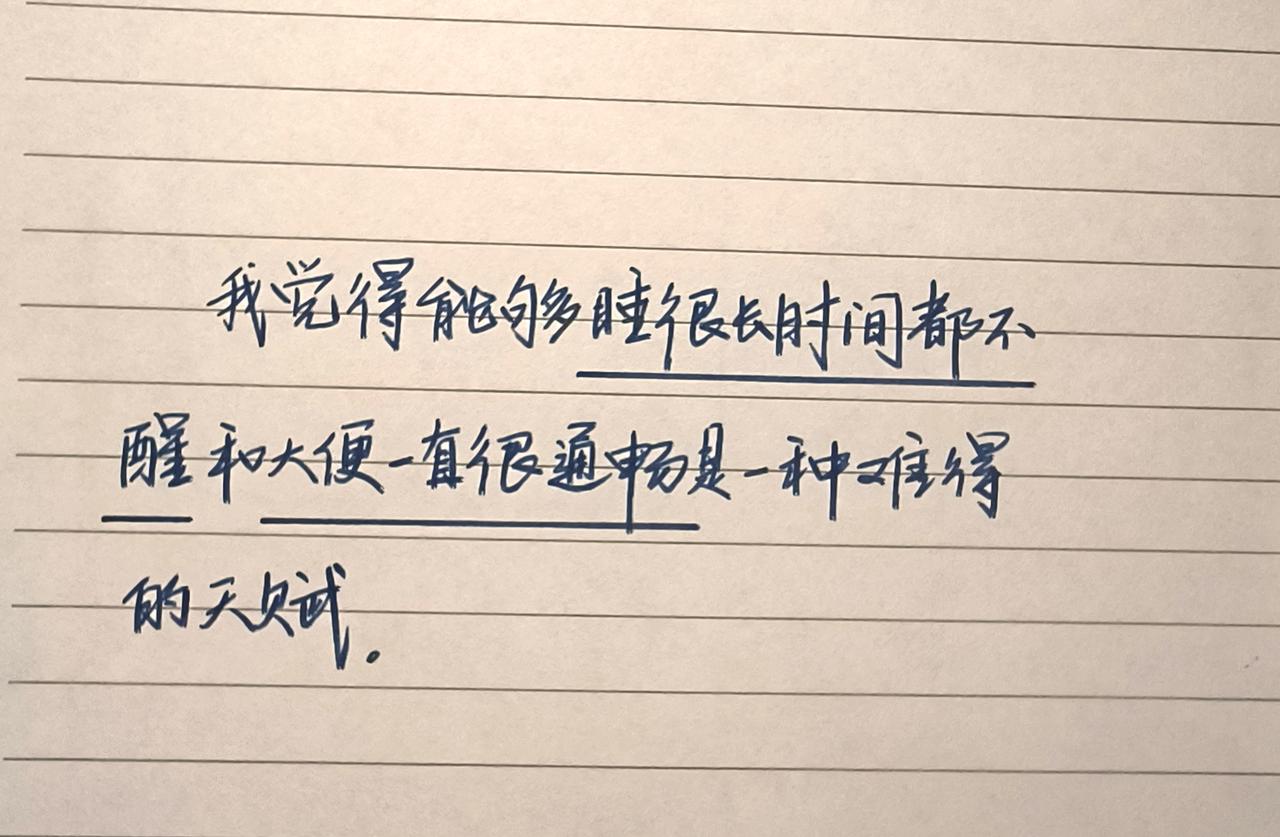 我觉得能够睡很长时间都不
醒和大便一直很通畅是一种难得
的天赋.